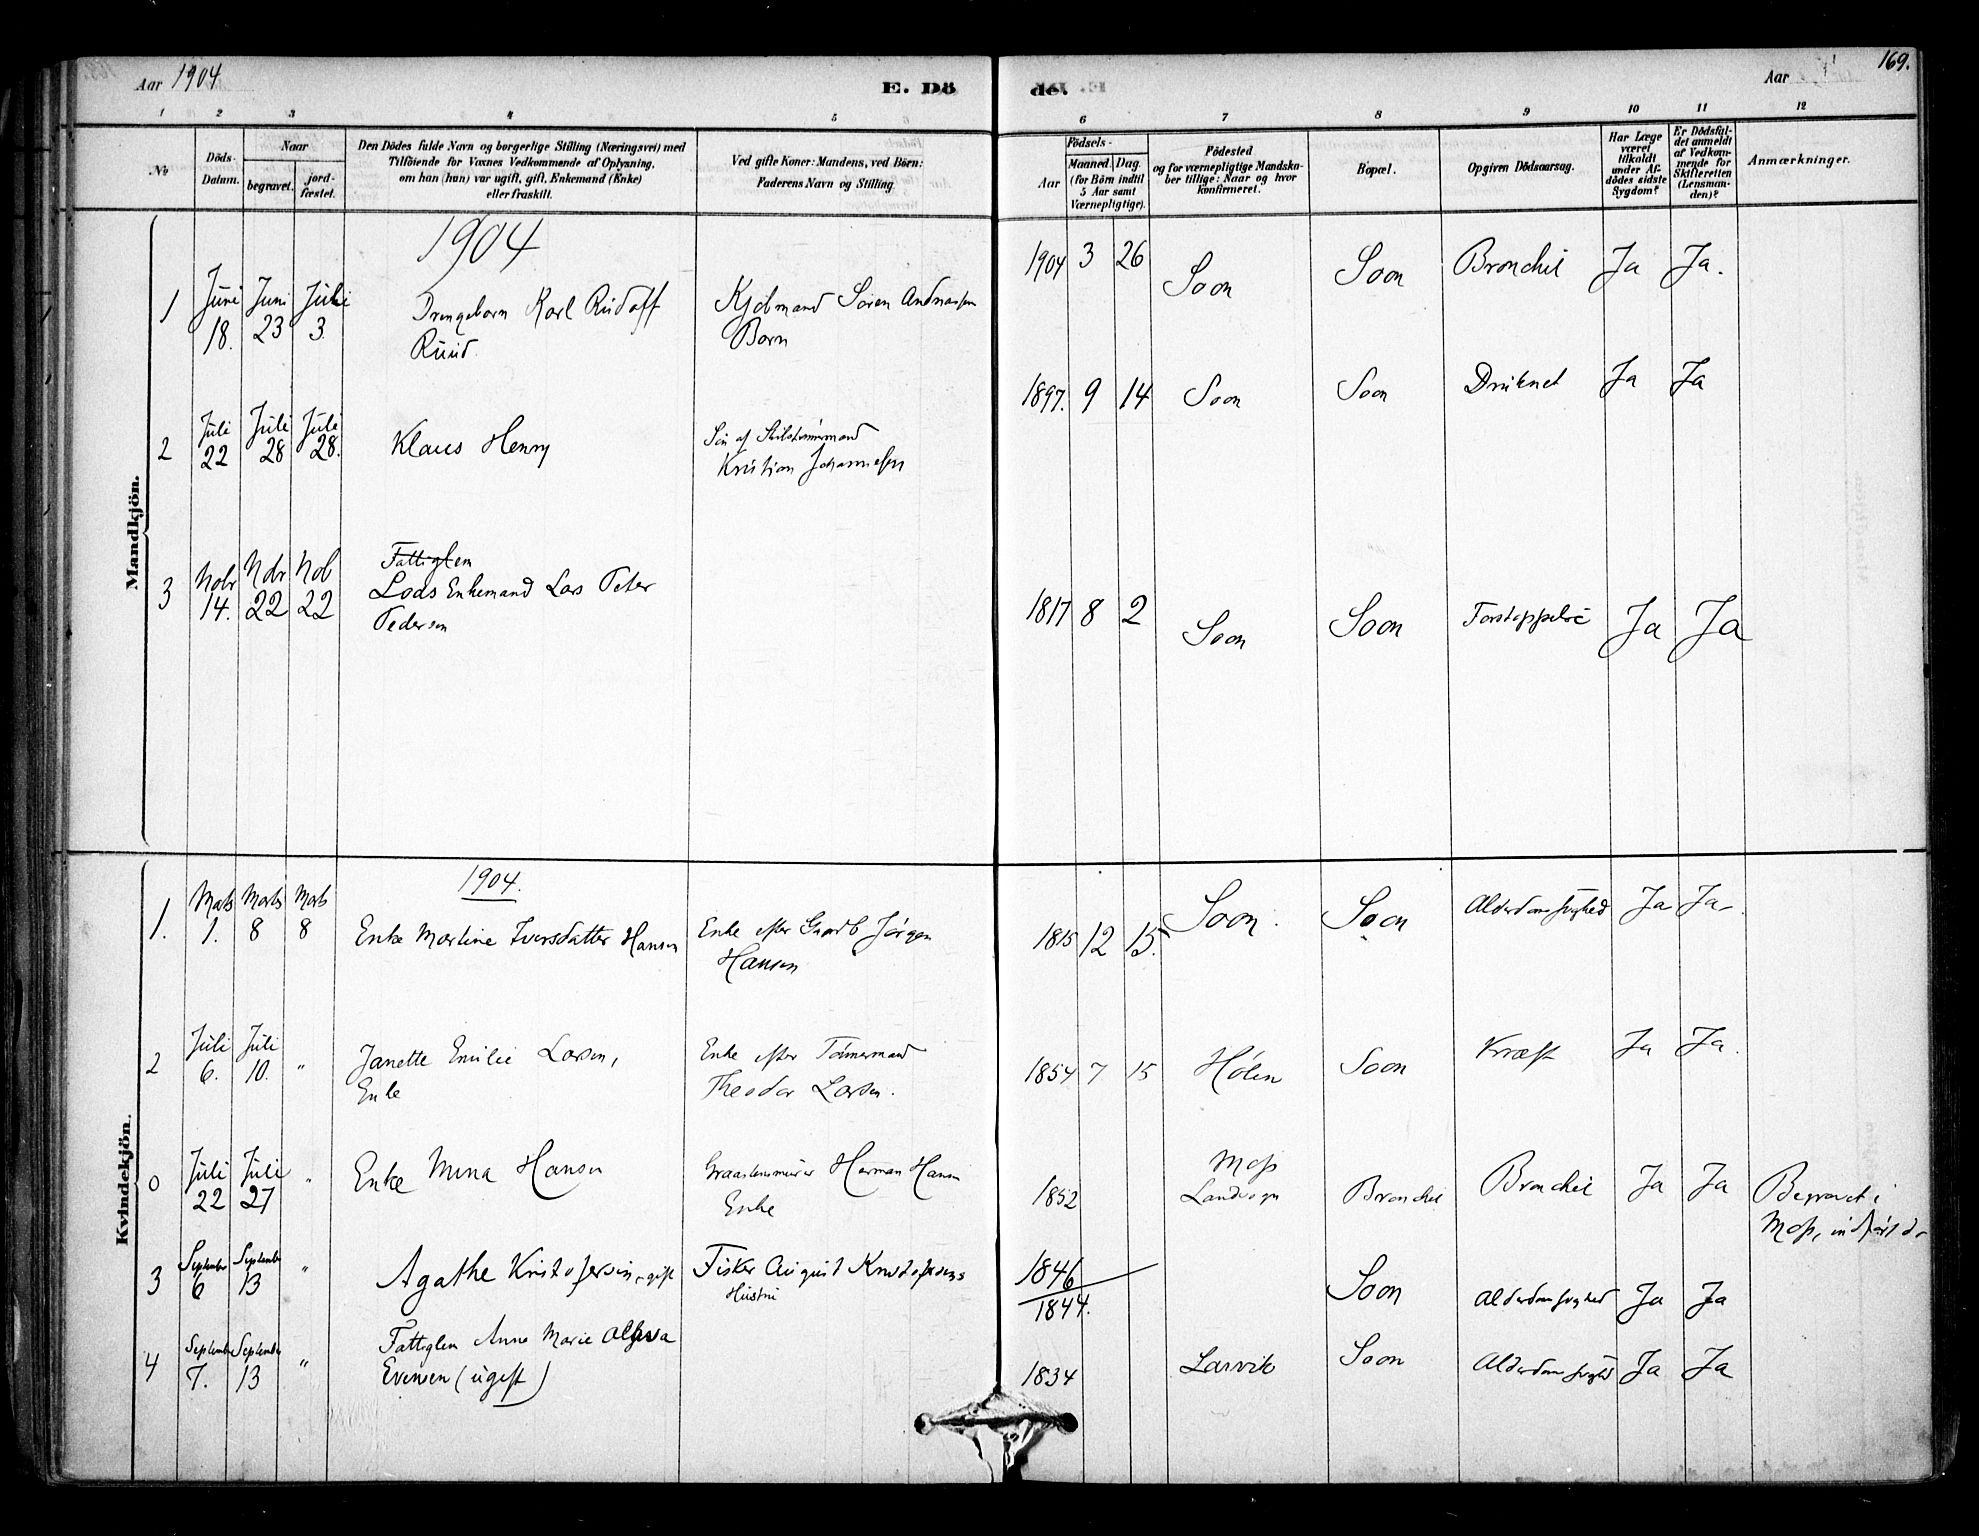 Aar 1904
E. Dö
de.
Aar
169.
1 2 3 4 5 6 7 8 9 10 11 12
No
Döds-
Datum.
Naar
begravet.
jord-
fæstet.
Den Dödes fulde Navn og borgerlige Stilling (Næringsvei) med
Tilföiende for Voxnes Vedkommende af Oplysning,
om han (hun) var ugift, gift, Enkemand (Enke)
eller fraskilt.
Ved gifte Koner: Mandens, ved Börn:
Faderens Navn og Stilling.
Födsels-
Aar
Maaned. Dag.
(for Börn indtil
5 Aar samt
Værnepligtige).
Födested
og for værnepligtige Mandska-
ber tillige: Naar og hvor
konfirmeret.
Bopæl.
Opgiven Dödsaarsag.
Har Læge
været
tilkaldt
under Af-
dödes sidste
Sygdom?
Er Dödsfal-
det anmeldt
af Vedkom-
mende for
Skifteretten
(Lensman-
den)?
Anmærkninger.
Mandkjön.
1904
1 Juni 18. Juni 23 Juli 3. Drengebarn Karl Rudolf Kjøbmand Søren Andreassen 1904 3 26 Soon Soon Bronchit Ja Ja.
Ruud. Barn
2 Juli 22 Juli 28 Juli 28. Klaus Henry Søn af 1897. 9 14 Soon Soon Druknet Ja Ja
Kristian Johannesen
Fattiglem
3 Nobr 14. Nobr 22 Nob 22 Lods Enkemand Lars Peter 1817 8 2 Soon Soon Forstoppelse Ja Ja
Pedersen
Kvindekjön.
1904.
1. Marts 1. Marts 8 Marts 8 Enke Martine Iversdatter Hansen Enke efter Gaardb Jørgen 1815 12 15. Soon. Soon Alderdomssvaghed Ja Ja
Hansen
2 Juli 6. Juli 10. " Janette Emilie Larsen, Enke efter Tømmermand 1854 7 15 Hølen Soon Kræft Ja Ja.
Enke Theodor Larsen.
0 Juli 22 Juli 27 " Enke Mina Hansen Graastensmurer Herman Hansen 1852 Moss Bronchit Bronchit Ja Ja Begravet i
Enke Landsogn Moss, indført d
3 September 6 September 13 " Agathe Kristofersen, gift Fisker August Kristofersens 1846 Soon Alderdomssvaghed Ja Ja
Hustru 1844.
4 September 7. September 13 " Fattiglem Anne Marie 1834 Larvik Soon Alderdomssvaghed Ja Ja
Evensen (ugift)